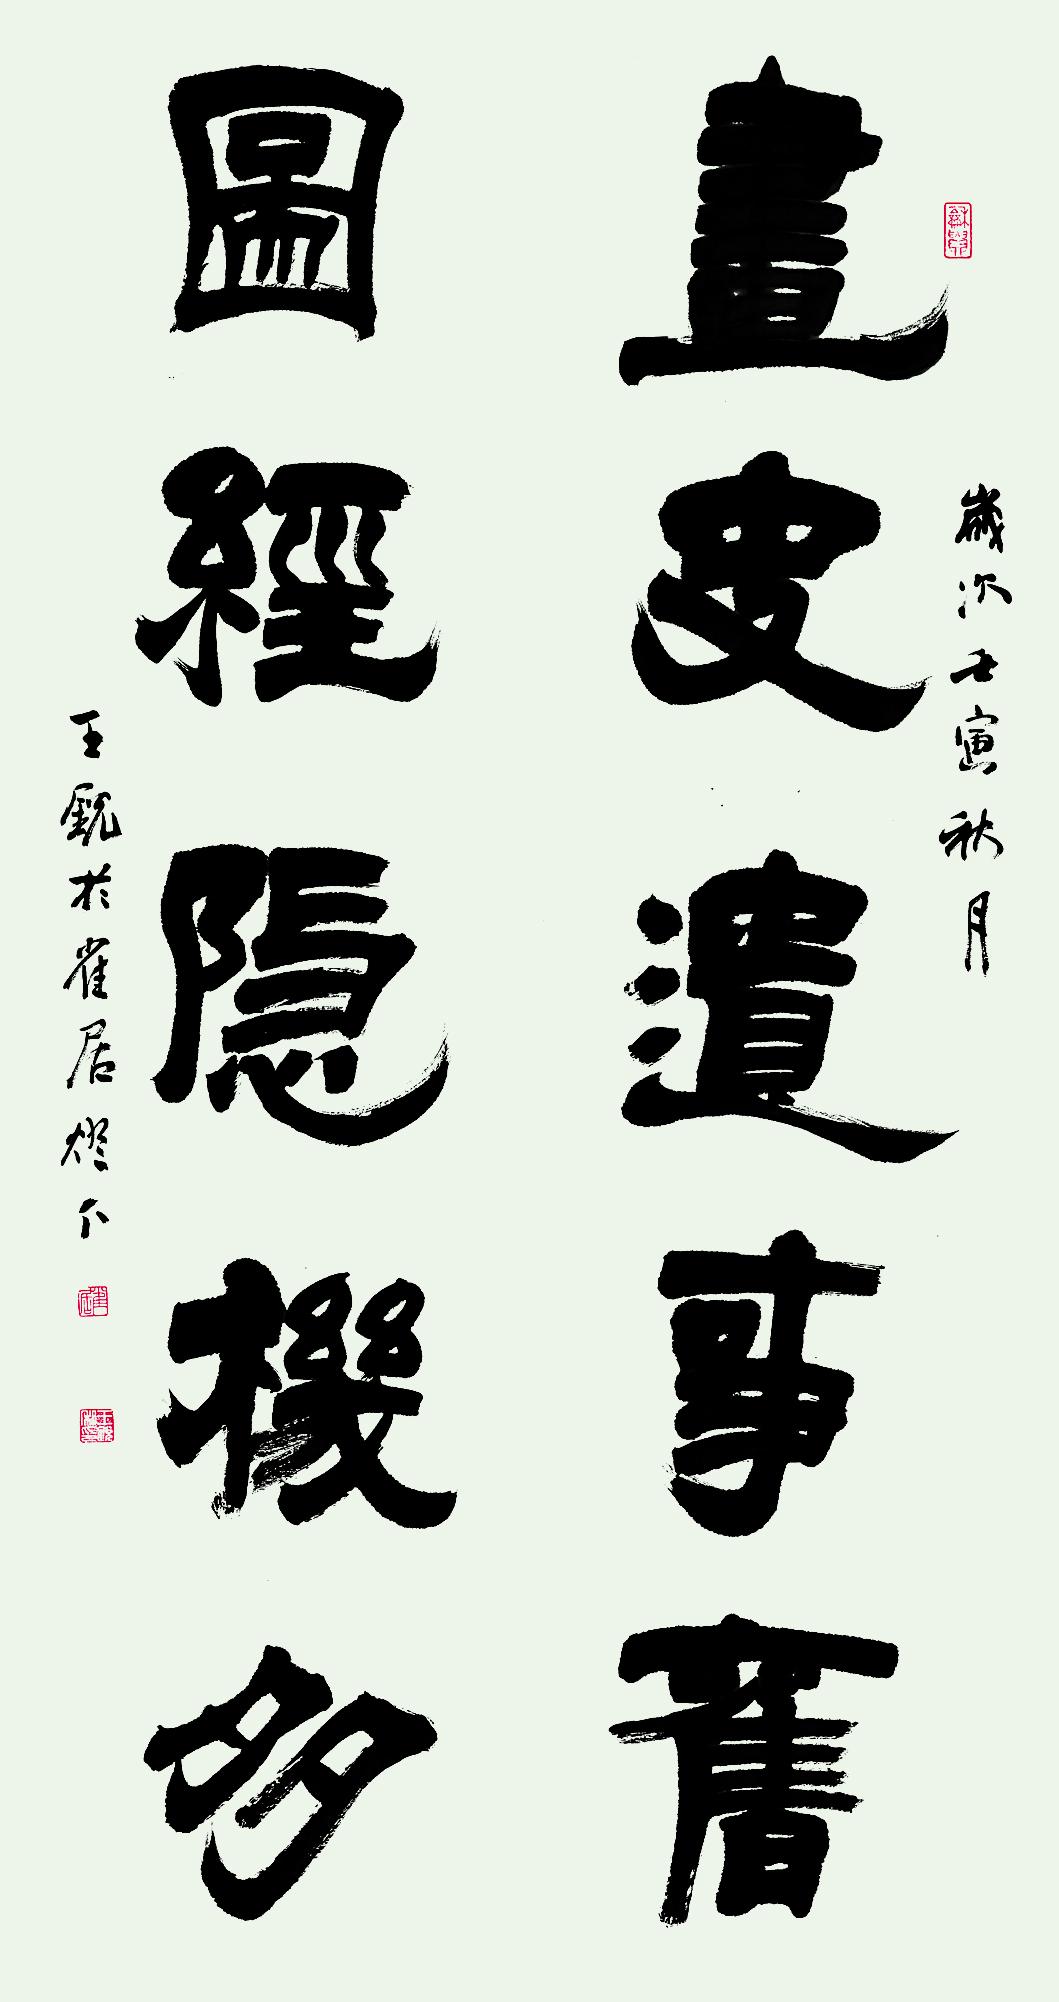 歲次壬寅秋月
畫史遺事舊
圖經隱機多
王觀於雀居燈下